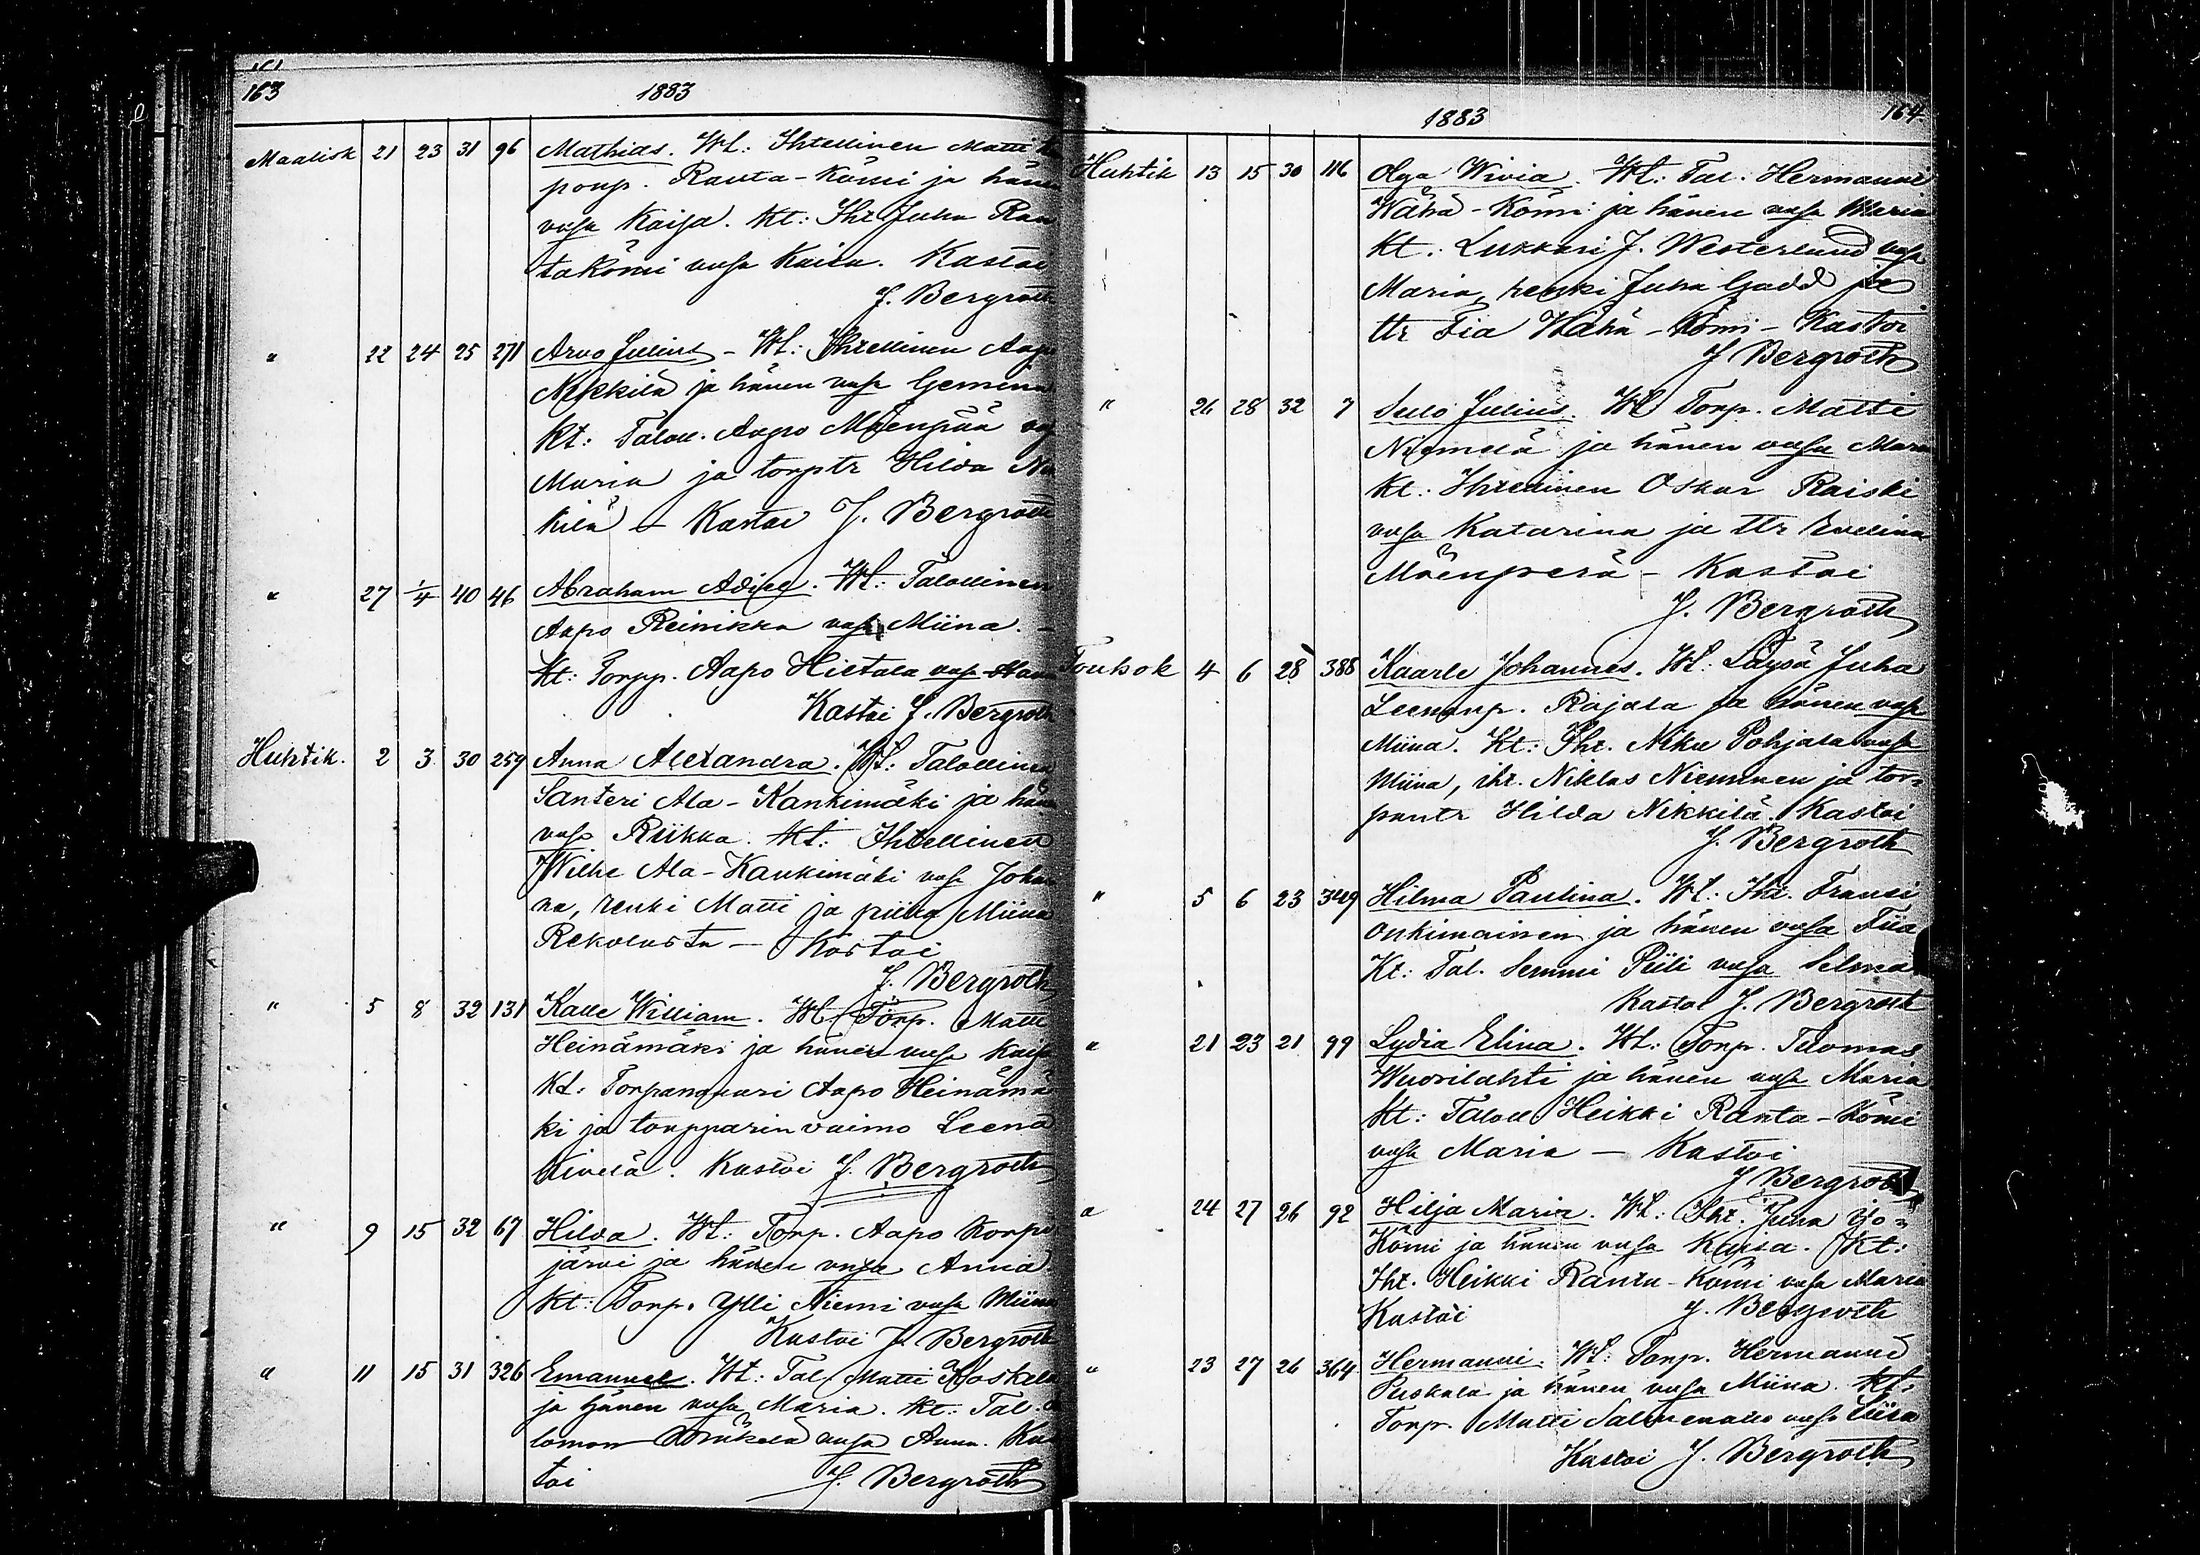 163 1883
Maalisk 21 23 31 96 Mathias. Wt: Ihtellinen Matti
poup. Ranta-Kömi ja hänen
vaſa Kaisa. Kt: Iht Juha Ran
takömi vaſa Kaisa. Kastoi
J. Bergroth
" 22 24 25 271 Arvo Julius - Wt: Ihtellinen Aapo
Nikkilä ja hänen vaſa Gemina
Kt: Taloll. Aapo Mäenpää vaſ
Maria ja torptr Hilda Nik
kilä - Kastoi J. Bergroth
" 27 1/4 40 46 Abraham Adiel. Wt: Talollinen
Aapo Reinikka vaſa Miina. -
Kt: Torpp. Aapo Hietala vaſa
Kastoi J. Bergroth
Huhtik. 2 3 30 259 Anna Alexandra. Wt: Talollinen
Santeri Ala-Kankimäki ja hän
vaſa Riikka. Kt: Ihtellinen
Wilhe Ala-Kankimäki vaſa Johan
na, renki Matti ja piika Miina
Rekolasta - Kastoi
J. Bergroth
" 5 8 32 131 Kalle William. Wt Torp. Matti
Heinämäki ja hänen vaſa Kaisa
Kt: Torpanpuari Aapo Heinämä
ki ja torpparin vaimo Leena
Kivelä. Kastoi J. Bergroth
" 9 15 32 67 Hilda. Wt: Torp. Aapo Korpi
järvi ja hänen vaſa Anna
Kt: Torp. Ylli Niemi vaſa Miina
Kastoi J. Bergroth
" 11 15 31 326 Emanuel. Wt: Tal Matti Koskela
ja hänen vaſa Maria. Kt: Tal.
lomon Mäkelä vaſa Anna. Kas
toi J. Bergroth
1883 164
Huhtik 13 15 30 116 Olga Wivia. Wt: Tal. Hermanni
Wähä-Kömi ja hänen vaſa Maria
Kt: Lukkari J. Westerlund vaſa
Maria, renki Juha Gadd ja
ttr Fia Wähä-Kömi - Kastoi
J Bergroth
" 26 28 32 7 Sulo Julius. Wt Torp. Matti
Niemelä ja hänen vaſa Maria
Kt: Ihtellinen Oskar Raiski
vaſa Katarina ja ttr Evelina
Mäenperä - Kastoi
J. Bergroth
Toukok 4 6 28 388 Kaarle Johannes. Wt: Läysä Juha
Leenanp. Rajala ja hänen vaſa
Miina. Kt: Iht. Niku Pohjala vaſa
Miina, iht. Niklas Nieminen ja tor=
pantr Hilda Nikkilä. Kastoi
J. Bergroth
" 5 6 23 349 Hilma Paulina. Wt: Iht. Fransi
Onkimainen ja hänen vaſa Fiia
Kt: Tal. Semmi Piili vaſa Selma
Kastoi J. Bergroth
" 21 23 21 99 Lydia Elina. Wt: Torp. Tuomas
Wuorilahti ja hänen vaſa Maria
Kt: Taloll Heikki Ranta-Kömi
vaſa Maria - Kastoi
J Bergroth
" 24 27 26 92 Hilja Maria. Wt: Iht. Juha Yö=
Kömi ja hänen vaſa Kaisa. Kt:
Iht. Heikki Ranta-Kömi vaſa Maria
Kastoi J. Bergroth
" 23 27 26 364 Hermanni. Wt: Torp. Hermanni
Puskala ja hänen vaſa Miina. Kt:
Torp. Matti vaſa Liisa
Kastoi J. Bergroth